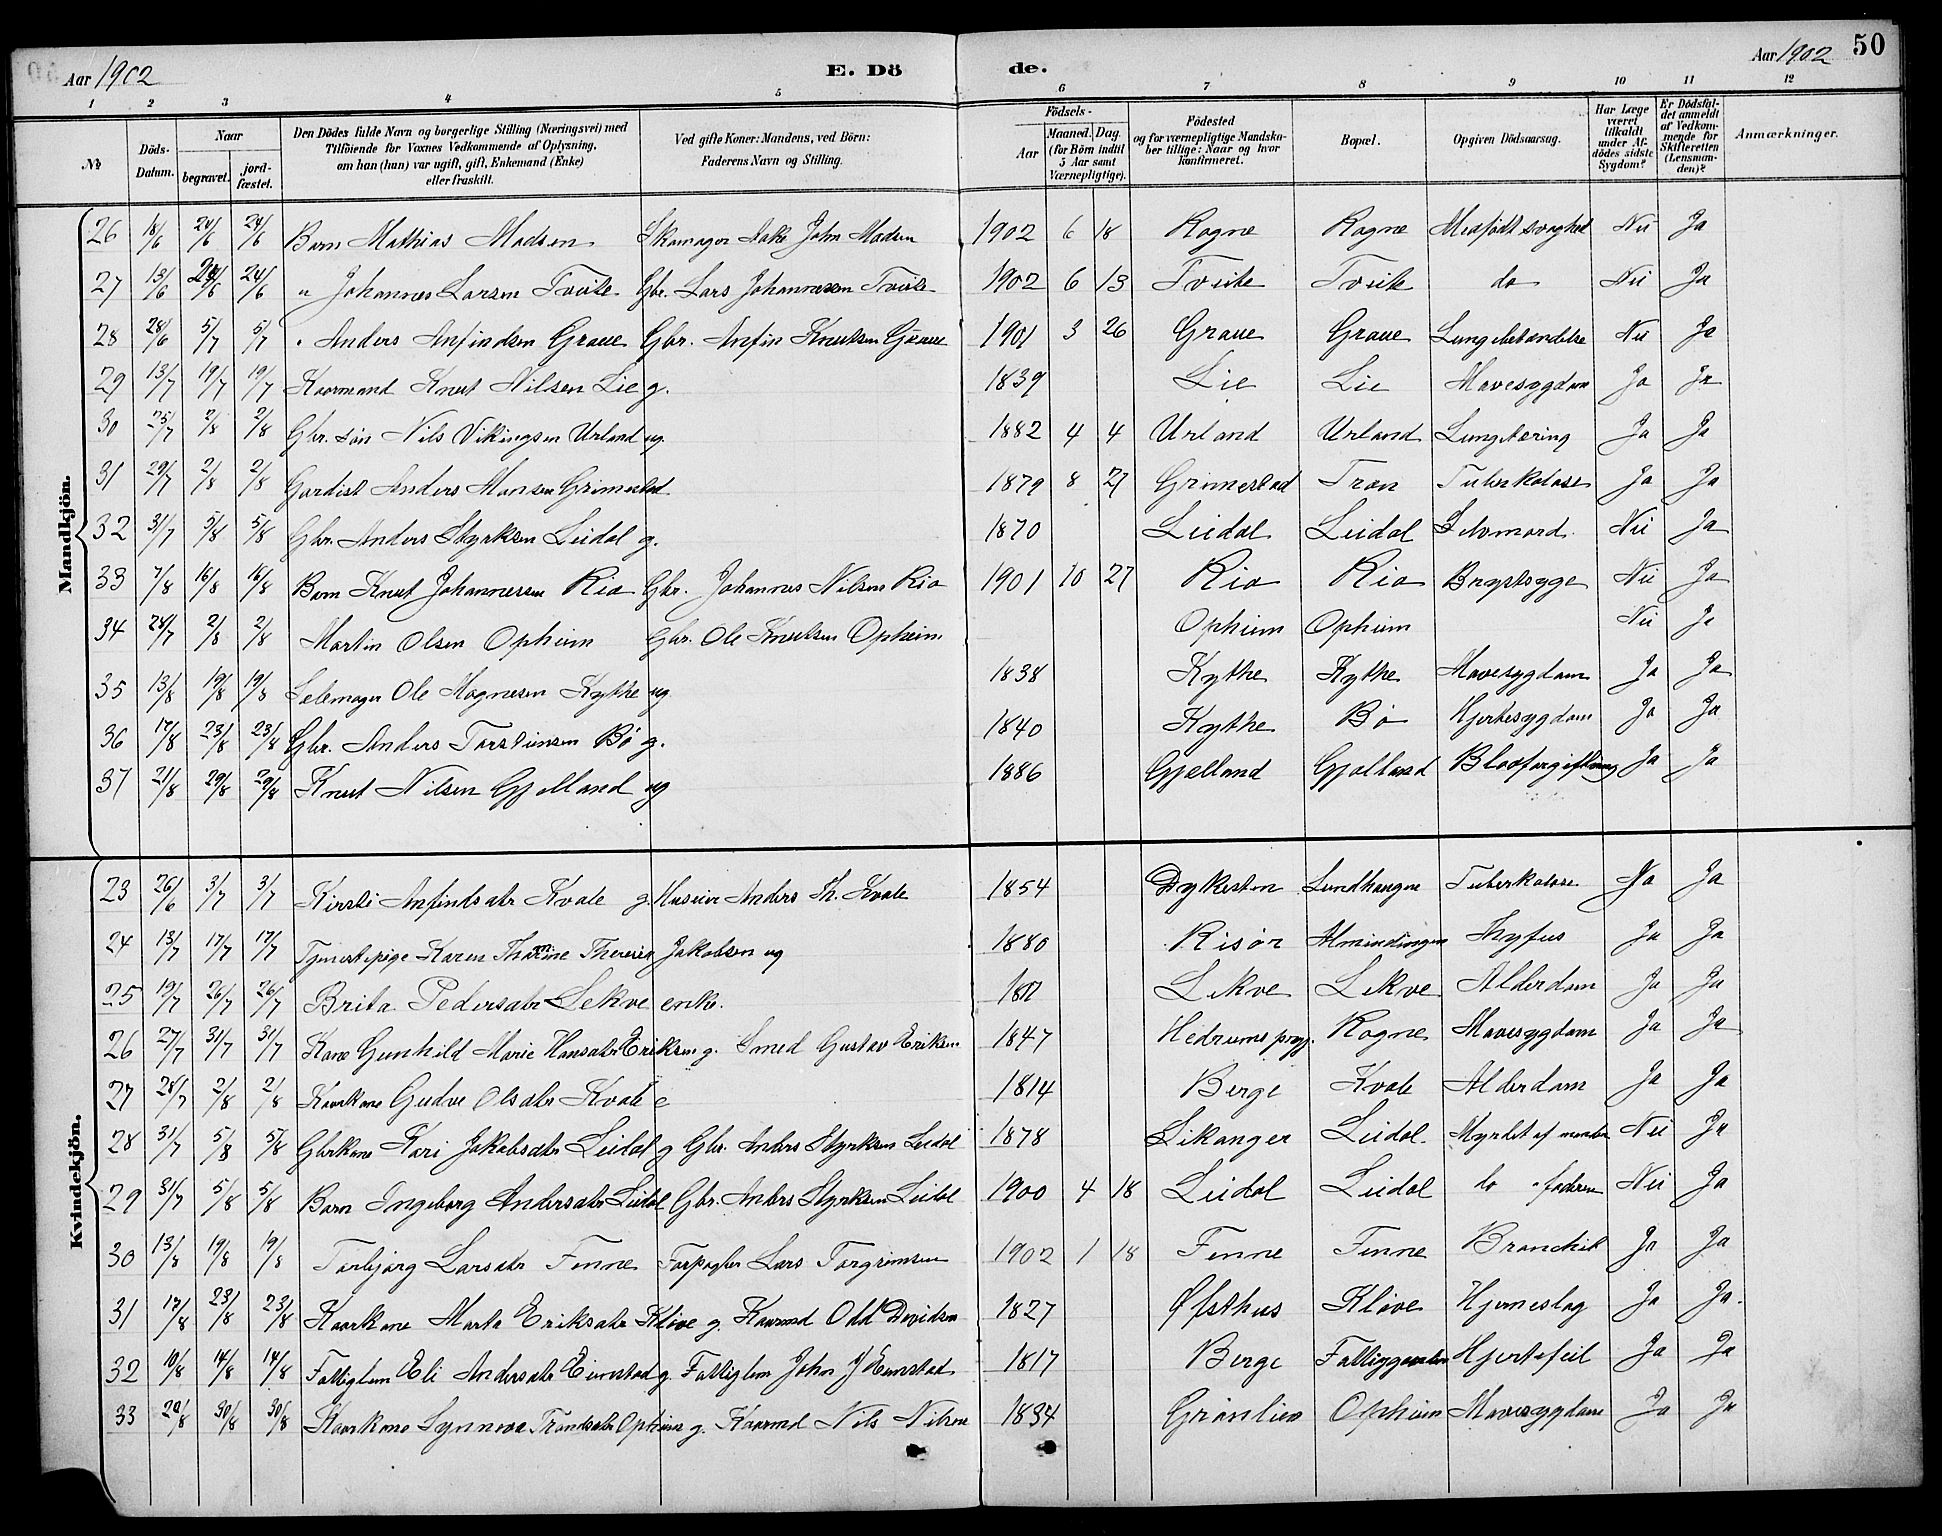 Aar 1902
E. Dö
de.
Aar 1902
50
1 2 3 4 5 6 7 8 9 10 11 12
№
Döds-Datum.
Naar begravet. jord-fæstet.
Den Dödes fulde Navn og borgerlige Stilling (Næringsvei) med Tilföiende for Voxnes Vedkommende af Oplysning, om han (hun) var ugift, gift, Enkemand (Enke) eller fraskilt.
Ved gifte Koner: Mandens, ved Börn: Faderens Navn og Stilling.
Födsels- Aar Maaned. Dag. (for Börn indtil 5 Aar samt Værnepligtige).
Födested og for værnepligtige Mandska-ber tillige: Naar og hvor konfirmeret.
Bopæl.
Opgiven Dödsaarsag.
Har Læge været tilkaldt under Af-dödes sidste Sygdom?
Er Dödsfal-det anmeldt af Vedkom-mende for Skifteretten (Lensman-den)?
Anmærkninger.
Mandkjön.
26 18/6 24/6 24/6 Barn Mathias Madsen Skomager Aake John Madsen 1902 6 18 Rogne Rogne Medfødt svaghed Nei Ja
27 13/6 24/6 24/6 " Johannes Larsen Tveite Gbr. Lars Johannessen Tveite 1902 6 13 Tveite Tveite do Nei Ja
28 28/6 5/7 5/7 " Anders Anfindsen Graue Gbr. Anfin Knutsen Graue 1901 3 26 Graue Graue Lungebetændelse Nei Ja
29 13/7 19/7 19/7 Kaarmand Knut Nilsen Lie g. 1839 Lie Lie Mavesygdom Ja Ja
30 25/7 2/8 2/8 Gbr. søn Nils Vikingsen Urland ug 1882 4 4 Urland Urland Lungetæring Ja Ja
31 29/7 2/8 2/8 Gardist Anders Monsen Grimestad 1879 8 27 Grimestad Træn Tuberkulose Ja Ja
32 31/7 5/8 5/8 Gbr. Anders Styrksen Leidal g. 1870 Leidal Leidal Selvmord. Nei Ja
33 7/8 16/8 16/8 Barn Knut Johannessen Rio Gbr. Johannes Nilsen Rio 1901 10 27 Rio Rio Brystsyge Nei Ja
34 28/7 2/8 2/8 Martin Olsen Opheim Gbr. Ole Knutsen Opheim Opheim Opheim Nei Ja
35 13/8 19/8 19/8 Selemager Ole Magnesen Kythe ug 1838 Kythe Kythe Mavesygdom Ja Ja
36 17/8 23/8 23/8 Gbr. Anders Torsteinsen Bø g. 1840 Kythe Bø Hjertesygdom Ja Ja
37 21/8 29/8 29/8 Knut Nilsen Gjelland ug 1886 Gjelland Gjelland Blodforgiftning Ja Ja
Kvindekjön.
23 26/6 3/7 3/7 Kirsti Anfindsdtr Kvale g. Huseier Anders Th. Kvale 1854 Dykesten Lundhaugne Tuberkulose Ja Ja
24 13/7 17/7 17/7 Tjenestepige Karen Thomine Therecie Jakobsen ug 1880 Risør Almindingen Thyfus Ja Ja
25 19/7 26/7 26/7 Brita Pedersdtr Lekve enke. Lekve Lekve Alderdom Ja Ja
26 27/7 31/7 31/7 Kone Gunhild Marie Hansdtr Eriksen g. Smed Gustav Eriksen 1847 Hedrums prgj. Rogne Mavesygdom Ja Ja
27 28/7 2/8 2/8 Kaarkone Gudve Olsdtr Kvale e 1814 Berge Kvale Alderdom Ja Ja
28 31/7 5/8 5/8 Gbrkone Kari Jakobsdtr Leidal g Gbr. Anders Styrksen Leidal 1878 Leikanger Leidal. Myrdet af manden Nei Ja
29 31/7 5/8 5/8 Barn Ingeborg Andersdtr Leidal Gbr. Anders Styrksen Leidal 1900 4 18 Leidal Leidal do " faderen Nei Ja
30 13/8 19/8 19/8 Torbjørg Larsdtr Finne Forpagter Lars Torgrimsen 1902 1 18 Finne Finne Bronchit Ja Ja
31 17/8 23/8 23/8 Kaarkone Marta Eriksdtr Kløve g. Kaarmd Odd Davidsen 1827 Øfsthus Kløve Hjerneslag Ja Ja.
32 10/8 14/8 14/8 Fattiglem Eli Andersdtr Eimstad g. Fattiglem John J Eimstad 1817 Berge Fattiggaarden Hjertefeil Ja Ja
33 29/8 30/8 30/8 Kaarkone Synneva Trondsdtr Opheim g. Kaarmd Nils Nilsen 1834 Grønlien Opheim Mavesygdom Ja Ja